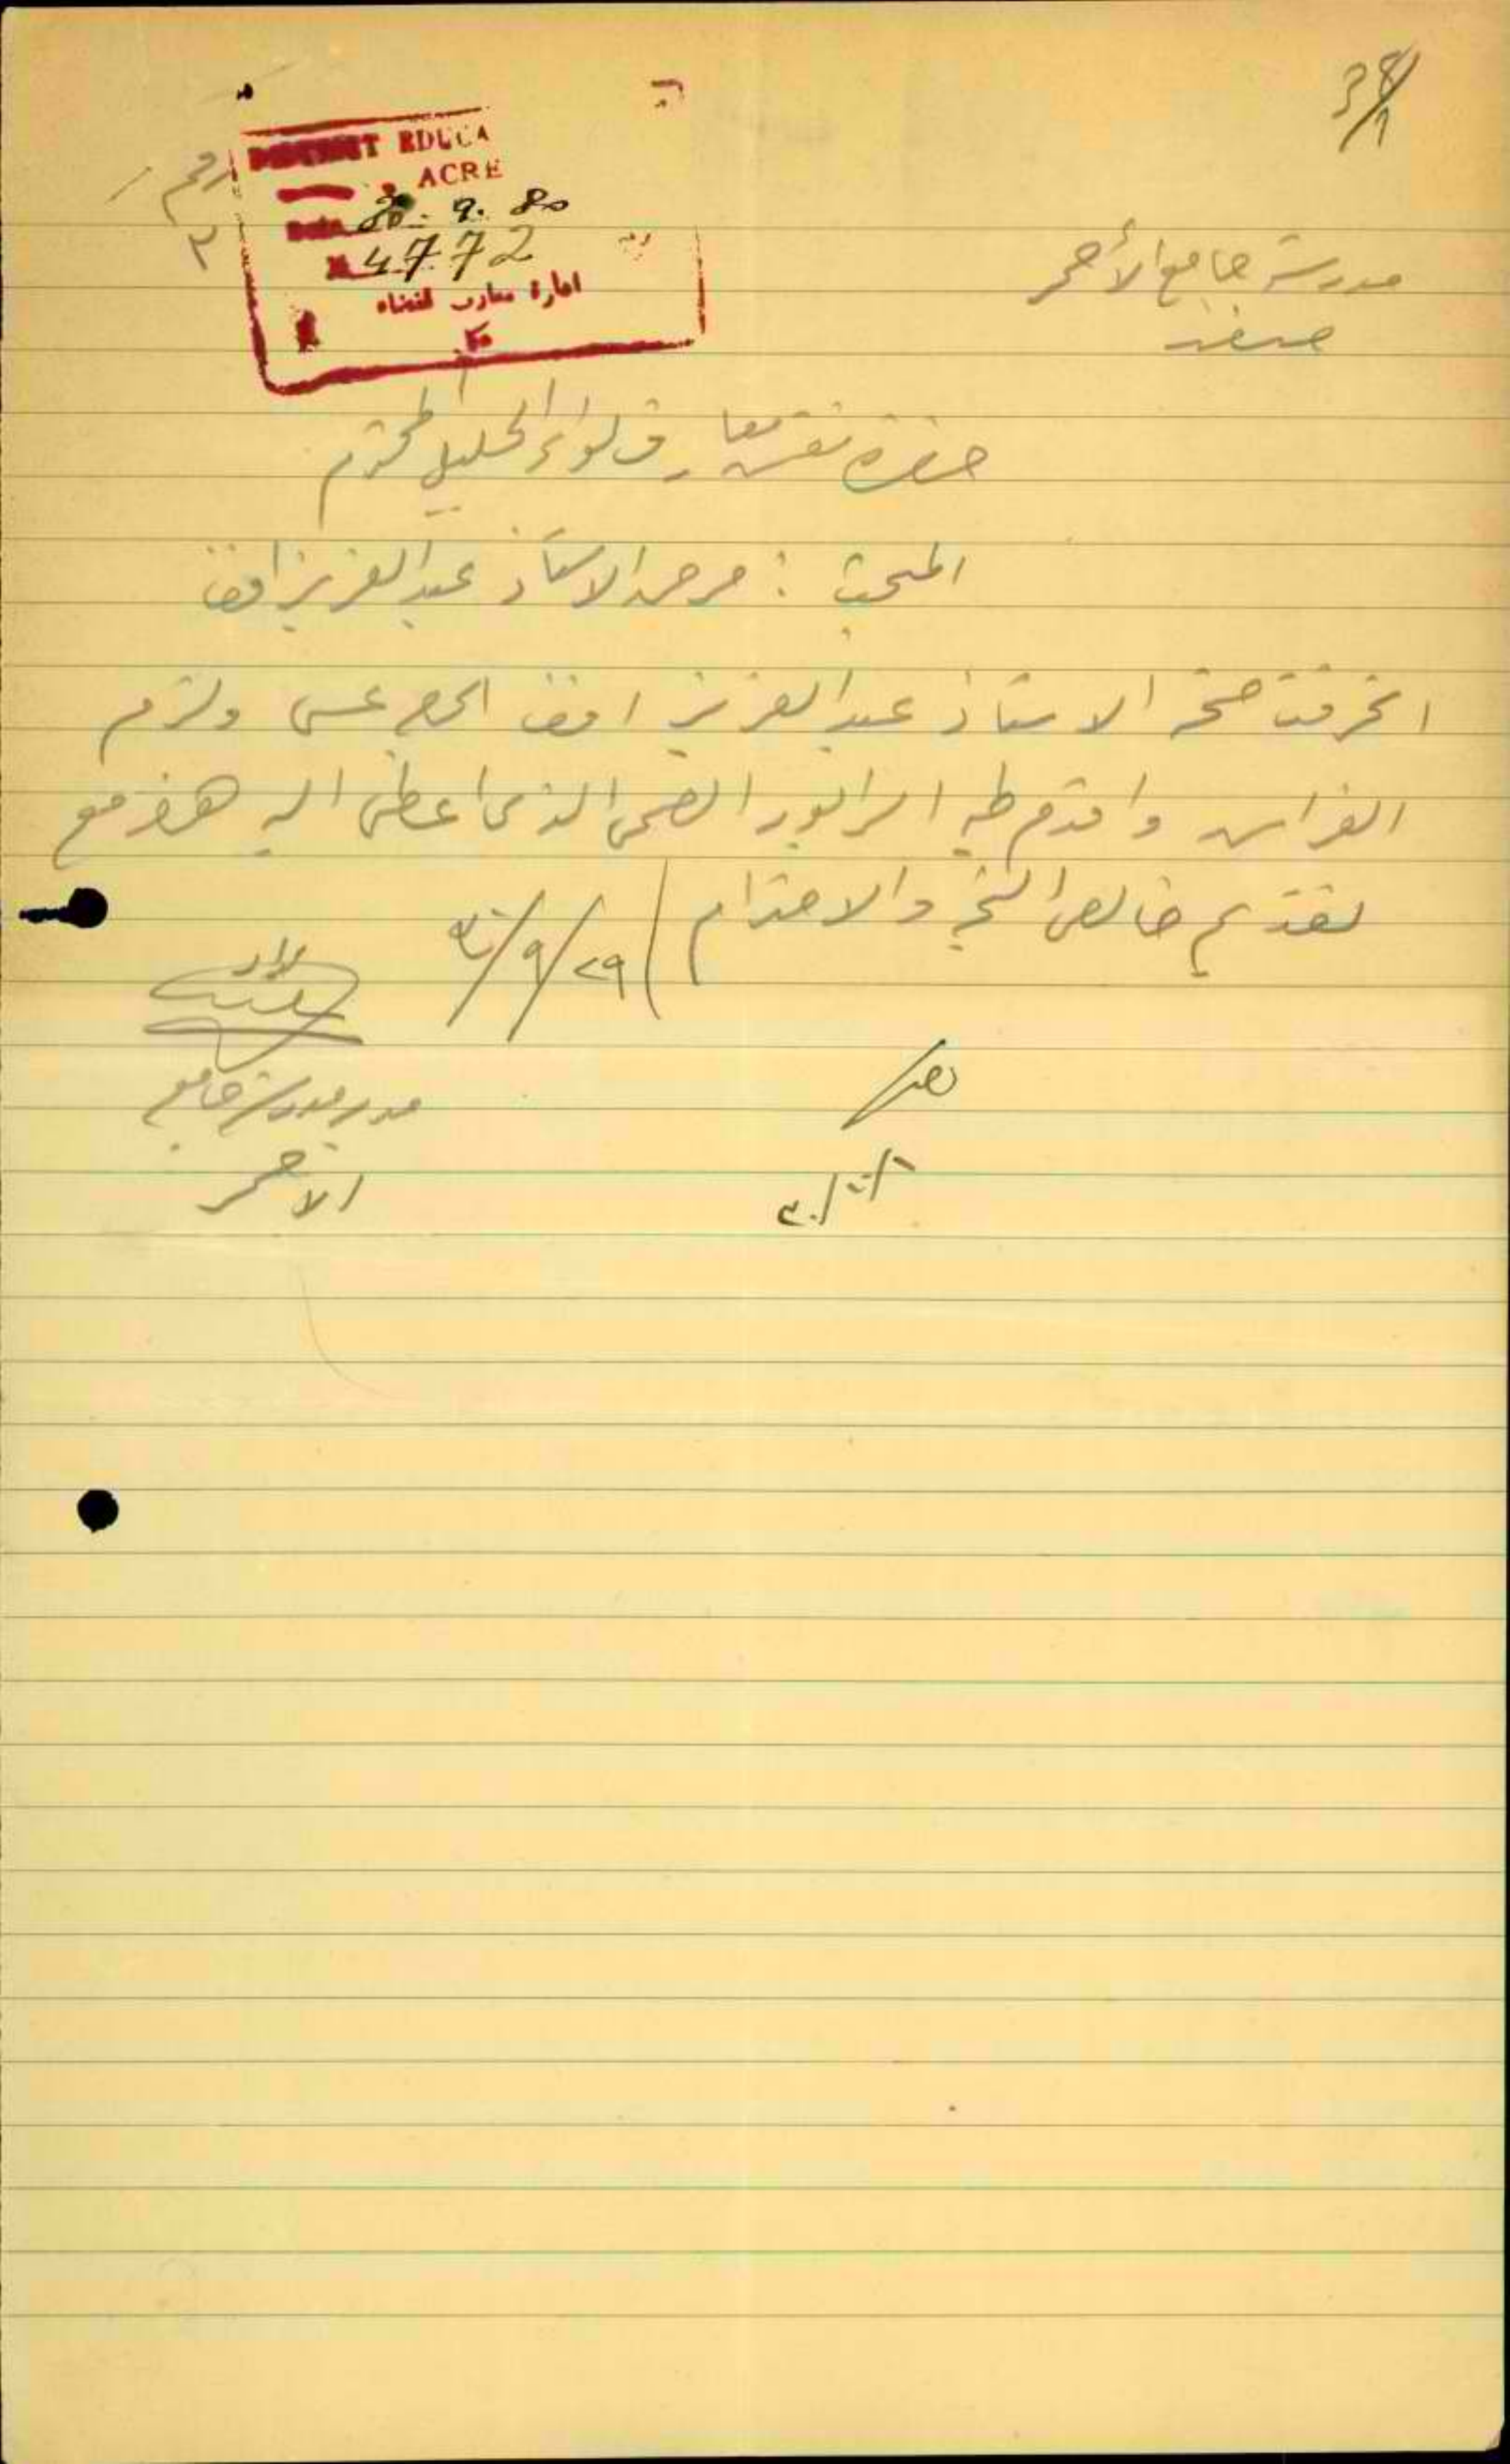 38/1
DISTRICT EDUCA
ACRE
رقم
٢
Date 30. 9. 80
N 4772
ادارة معارف لقضاء
عكا
مدرسة جامع الأحمر
صفد
حضرة مفتش معارف لواء الجليل المحترم
المبحث : مرض الاستاذ عبد العزيز افندي
انحرفت صحة الاستاذ عبد العزيز افندي الحاج عيسى ولزم
الفراش واقدم طيه الرابور الصحي الذي اعطي اليه هذا مع
تقديم خالص التحية والاحترام
٢٩/٩/
مدير مدرسة جامع
الاحمر